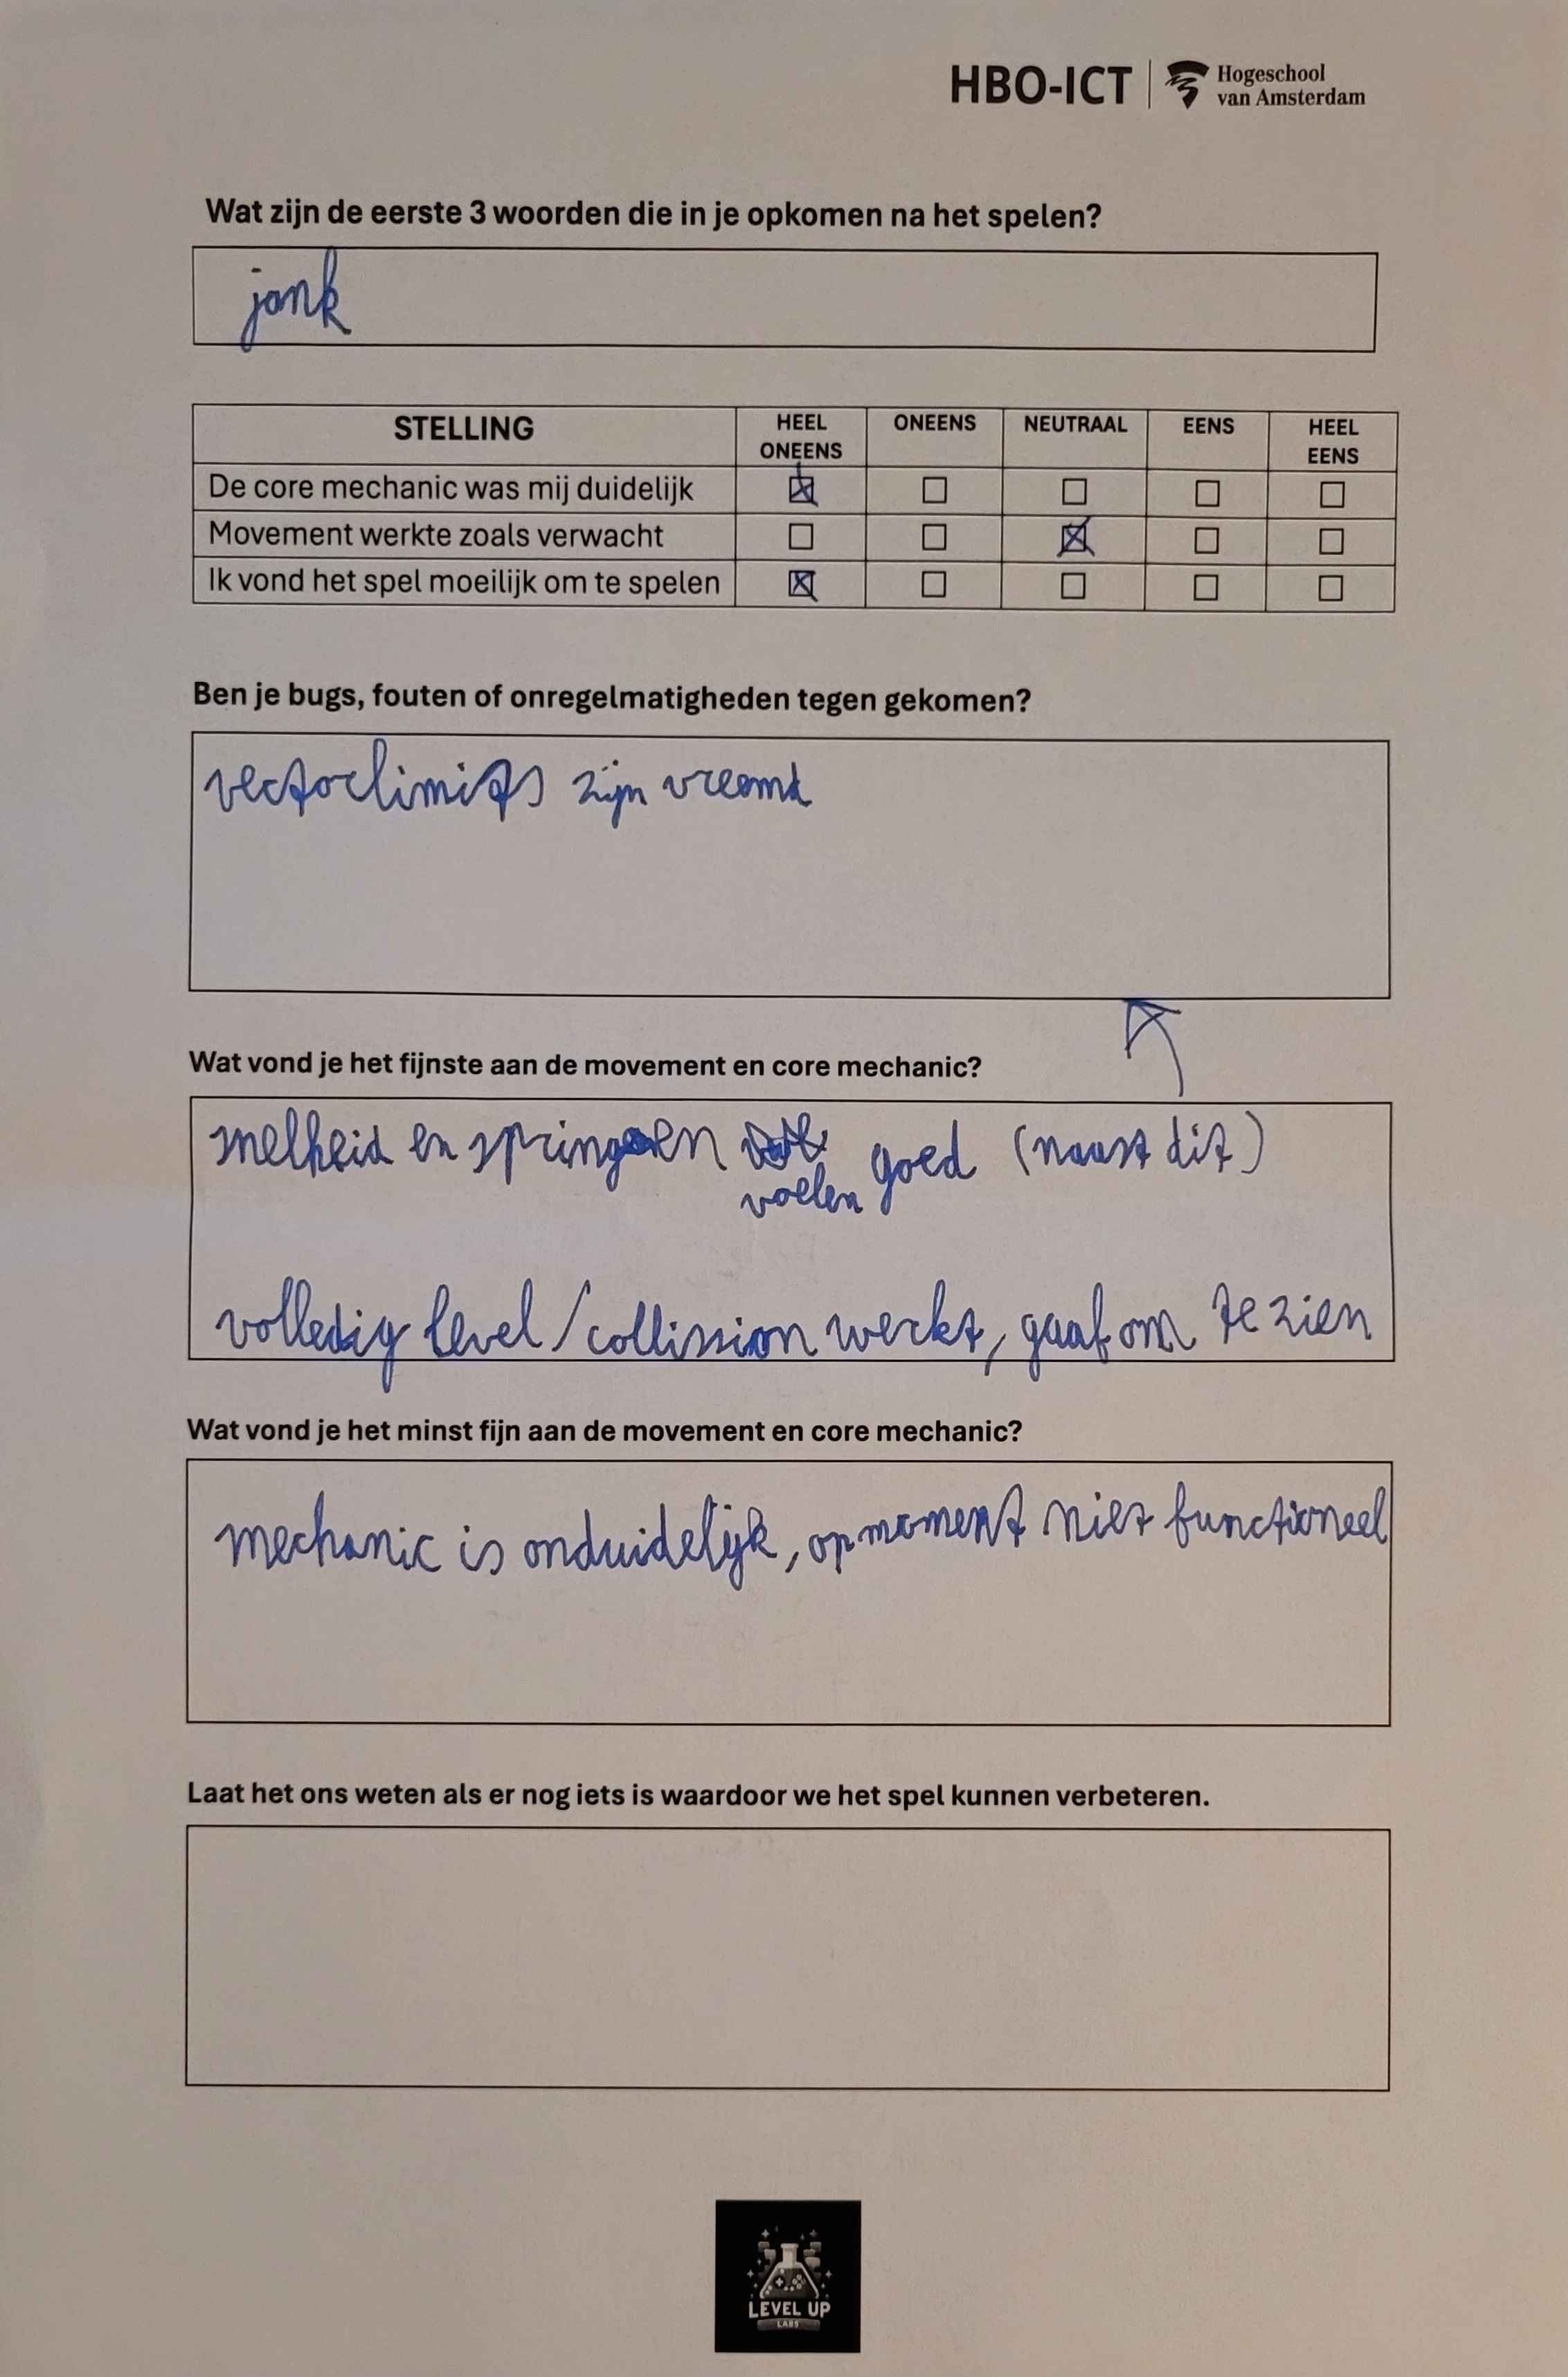 HBO-ICT
Hogeschool
van Amsterdam
Wat zijn de eerste 3 woorden die in je opkomen na het spelen?
jank
STELLING
HEEL ONEENS
ONEENS
NEUTRAAL
EENS
HEEL EENS
De core mechanic was mij duidelijk
Movement werkte zoals verwacht
Ik vond het spel moeilijk om te spelen
Ben je bugs, fouten of onregelmatigheden tegen gekomen?
vectorlimits zijn vreemd
Wat vond je het fijnste aan de movement en core mechanic?
snelheid en springen goed (naast dit)
voelen
volledig level/collission werkt, gaaf om te zien
Wat vond je het minst fijn aan de movement en core mechanic?
mechanic is onduidelijk, op moment niet functioneel
Laat het ons weten als er nog iets is waardoor we het spel kunnen verbeteren.
LEVEL UP
LABS